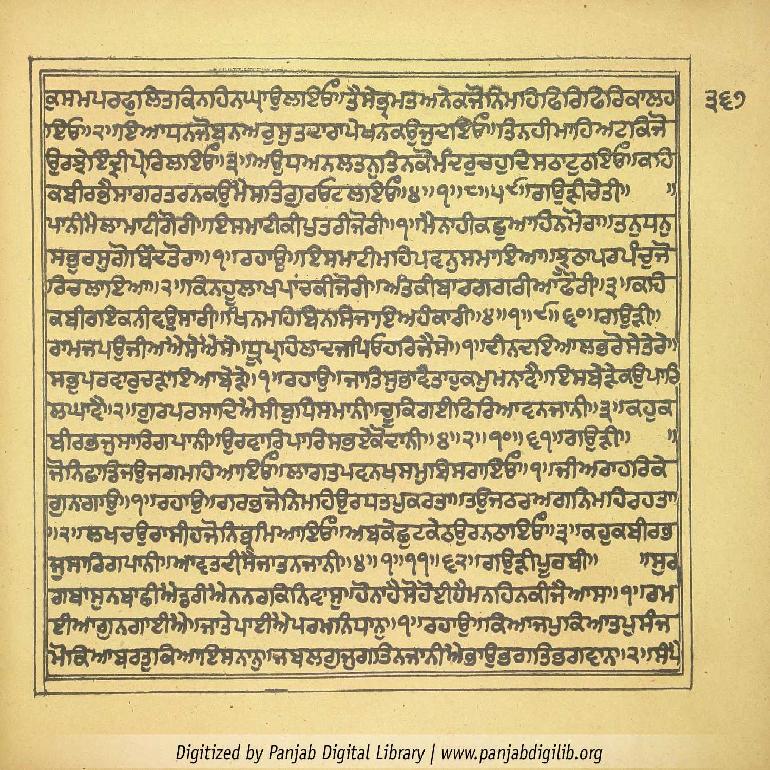 ਕੁਸਮਪਰਫੁਲਿਤਕਿਨਹਿਨਘ੍ਰਾਉਲਾਇਓ॥ਤੈਸੇਭ੍ਰਮਤਅਨੇਕਜੋਨਿਮਹਿਫਿਰਿਫਿਰਿਕਾਲਹ ੩੬੭
ਇਓ॥੨॥ਇਆਧਨਜੋਬਨਅਰੁਸੁਤਦਾਰਾਪੇਖਨਕਉਜੁਦਾਇਓ॥ਤਿਨਹੀਮਾਹਿਅਟਕਿਜੋ
ਉਰਝੇਇੰਦ੍ਰੀਪ੍ਰੇਰਿਲਾਇਓ॥੩॥ਅਉਧਅਨਲਤਨੁਤਿਨਕੋਮੰਦਰੁਚਹੁਦਿਸਠਾਟੁਠਾਇਓ॥ਕਹਿ
ਕਬੀਰਭੈਸਾਗਰਤਰਨਕਉਮੈਸਤਿਗੁਰਓਟਲਾਇਓ॥੪॥੧॥੮॥੫੯॥ਗਉੜੀਚੇਤੀ॥ ॥
ਪਾਨੀਮੈਲਾਮਾਟੀਗੋਰੀ॥ਇਸਮਾਟੀਕੀਪੁਤਰੀਜੋਰੀ॥੧॥ਮੈਨਾਹੀਕਛੁਆਹਿਨਮੋਰਾ॥ਤਨੁਧਨੁ
ਸਭੁਰਸੁਗੋਬਿੰਦਤੋਰਾ॥੧॥ਰਹਾਉ॥ਇਸਮਾਟੀਮਹਿਪਵਨੁਸਮਾਇਆ॥ਝੂਠਾਪਰਪੰਚੁਜੋ
ਰਿਚਲਾਇਆ॥੨॥ਕਿਨਹੂਲਾਖਪਾਂਚਕੀਜੋਰੀ॥ਅੰਤਕੀਬਾਰਗਗਰੀਆਫੋਰੀ॥੩॥ਕਹਿ
ਕਬੀਰਇਕਨੀਵਉਸਾਰੀ॥ਖਿਨਮਹਿਬਿਨਸਿਜਾਇਅਹੰਕਾਰੀ॥੪॥੧॥੯॥੬੦॥ਗਉੜੀ॥
ਰਾਮਜਪਉਜੀਅਐਸੇਐਸੇ॥ਧ੍ਰੂਪ੍ਰਹਿਲਾਦਜਪਿਓਹਰਿਜੈਸੇ॥੧॥ਦੀਨਦਇਆਲਭਰੋਸੇਤੇਰੇ॥
ਸਭੁਪਰਵਾਰੁਚੜਾਇਆਬੇੜੇ॥੧॥ਰਹਾਉ॥ਜਾਤਿਸੁਭਾਵੈਤਾਹੁਕਮੁਮਨਾਵੈ॥ਇਸਬੇੜੇਕਉਪਾਰਿ
ਲਘਾਵੈ॥੨॥ਗੁਰਪਰਸਾਦਿਐਸੀਬੁਧਿਸਮਾਨੀ॥ਚੂਕਿਗਈਫਿਰਿਆਵਨਜਾਨੀ॥੩॥ਕਹੁਕ
ਬੀਰਭਜੁਸਾਰਿਗਪਾਨੀ॥ਉਰਵਾਰਿਪਾਰਿਸਭਏਕੋਦਾਨੀ॥੪॥੨॥੧੦॥੬੧॥ਗਉੜੀ॥ ॥
ਜੋਨਿਛਾਡਿਜਉਜਗਮਹਿਆਇਓ॥ਲਾਗਤਪਵਨਖਸਮੁਬਿਸਰਾਇਓ॥੧॥ਜੀਅਰਾਹਰਿਕੇ
ਗੁਨਗਾਉ॥੧॥ਰਹਾਉ॥ਗਰਭਜੋਨਿਮਹਿਉਰਧਤਪੁਕਰਤਾ॥ਤਉਜਠਰਅਗਨਿਮਹਿਰਹਤਾ
॥੨॥ਲਖਚਉਰਾਸੀਹਜੋਨਿਭ੍ਰਮਿਆਇਓ॥ਅਬਕੇਛੁਟਕੇਠਉਰਨਠਾਇਓ॥੩॥ਕਹੁਕਬੀਰਭ
ਜੁਸਾਰਿਗਪਾਨੀ॥ਆਵਤਦੀਸੈਜਾਤਨਜਾਨੀ॥੪॥੧॥੧੧॥੬੨॥ਗਉੜੀਪੂਰਬੀ॥ ॥ਸੁਰ
ਗਬਾਸੁਨਬਾਛੀਐਡਰੀਐਨਨਰਕਿਨਿਵਾਸੁ॥ਹੋਨਾਹੈਸੋਹੋਈਹੈਮਨਹਿਨਕੀਜੈਆਸਾ॥੧॥ਰਮ
ਈਆਗੁਨਗਾਈਐ॥ਜਾਤੇਪਾਈਐਪਰਮਨਿਧਾਨੁ॥੧॥ਰਹਾਉ॥ਕਿਆਜਪੁਕਿਆਤਪੁਸੰਜ
ਮੋਕਿਆਬਰਤੁਕਿਆਇਸਨਾਨੁ॥ਜਬਲਗੁਜੁਗਤਿਨਜਾਨੀਐਭਾਉਭਗਤਿਭਗਵਾਨ॥੨॥ਸੰਪੈ
Digitized by Panjab Digital Library | www.panjabdigilib.org